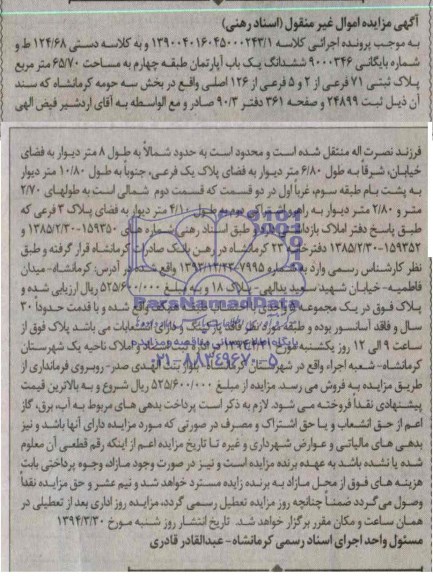 آگهی مزایده اموال غیر منقول (اسناد رهنی)
به موجب پرونده اجرائی کلاسه ۱۳۹۰۰۴۰۱۶۰۴۵۰۰۰۲۴۳/۱ و به کلاسه دستی ۱۲۴/۶۸ ط و
شماره بایگانی ۹۰۰۰۳۴۶ ششدانگ یک باب آپارتمان طبقه چهارم به مساحت ۶۵/۷۰ متر مربع
پلاک ثبتی ۷۱ فرعی از ۲ و ۵ فرعی از ۱۲۶ اصلی واقع در بخش سه حومه کرمانشاه که سند
آن ذیل ثبت ۲۴۸۹۹ و صفحه ۳۶۱ دفتر ۹۰/۳ صادر و مع الواسطه به آقای اردشیر فیض الهی
فرزند نصرت اله منتقل شده است و محدود است به حدود شمالاً به طول ۸ متر دیوار به فضای
خیابان، شرقاً به طول ۶/۸۰ متر دیوار به فضای پلاک یک فرعی، جنوباً به طول ۱۰/۸۰ متر دیوار
به پشت بام طبقه سوم، غرباً اول در دو قسمت که قسمت دوم شمالی است به طولهای ۲/۷۰
متر و ۲/۸۰ متر دیوار به راه پله اشتراکی دوم به طول ۴/۱۰ متر دیوار به فضای پلاک ۳ فرعی که
طبق پاسخ دفتر املاک بازداشت و طبق اسناد رهنی شماره های ۱۵۹۳۵۰-۱۳۸۵/۲/۳۰ و
۱۵۹۳۵۲-۱۳۸۵/۲/۳۰ دفترخانه ۲۳ کرمانشاه در رهن بانک صادرات کرمانشاه قرار گرفته و طبق
نظر کارشناس رسمی وارد به شماره ۷۹۹۵-۱۳۹۳/۱۲/۲۳ واقع شده در آدرس: کرمانشاه- میدان
فاطمیه- خیابان شهید سعید یدالهی- پلاک ۱۸ و به مبلغ ۵۲۵/۶۰۰/۰۰۰ ریال ارزیابی شده و
پلاک فوق در یک مجموعه واحدی به همکف واقع شده و با قدمت حدوداً ۳۰
سال و فاقد آسانسور بوده و طبقه مورد نظر فاقد پارکینگ و می باشد پلاک فوق از
ساعت ۹ الی ۱۲ روز یکشنبه مورخ اسناد و املاک ناحیه یک شهرستان
کرمانشاه- شعبه اجراء واقع در شهرستان کرمانشاه- بلوار بنت الهدی صدر- روبروی فرمانداری از
طریق مزایده به فروش می رسد. مزایده از مبلغ ۵۲۵/۶۰۰/۰۰۰ ریال شروع و به بالاترین قیمت
پیشنهادی نقداً فروخته می شود. لازم به ذکر است پرداخت بدهی های مربوط به آب، برق، گاز
اعم از حق انشعاب و یا حق اشتراک و مصرف در صورتی که مورد مزایده دارای آنها باشد و نیز
بدهی های مالیاتی و عوارض شهرداری و غیره تا تاریخ مزایده اعم از اینکه رقم قطعی آن معلوم
شده یا نشده باشد به عهده برنده مزایده است و نیز در صورت وجود مازاد، وجوه پرداختی بابت
هزینه های فوق از محل مازاد به برنده زایده مسترد خواهد شد و نیم عشر و حق مزایده نقداً
وصول می گردد ضمناً چنانچه روز مزایده تعطیل رسمی گردد، مزایده روز اداری بعد از تعطیلی در
همان ساعت و مکان مقرر برگزار خواهد شد. تاریخ انتشار روز شنبه مورخ ۱۳۹۴/۳/۳۰
مسئول واحد اجرای اسناد رسمی کرمانشاه- عبدالقادر قادری
ParsNamadData
۰۲۱-۸۸۳۴۹۶۷۰-۵